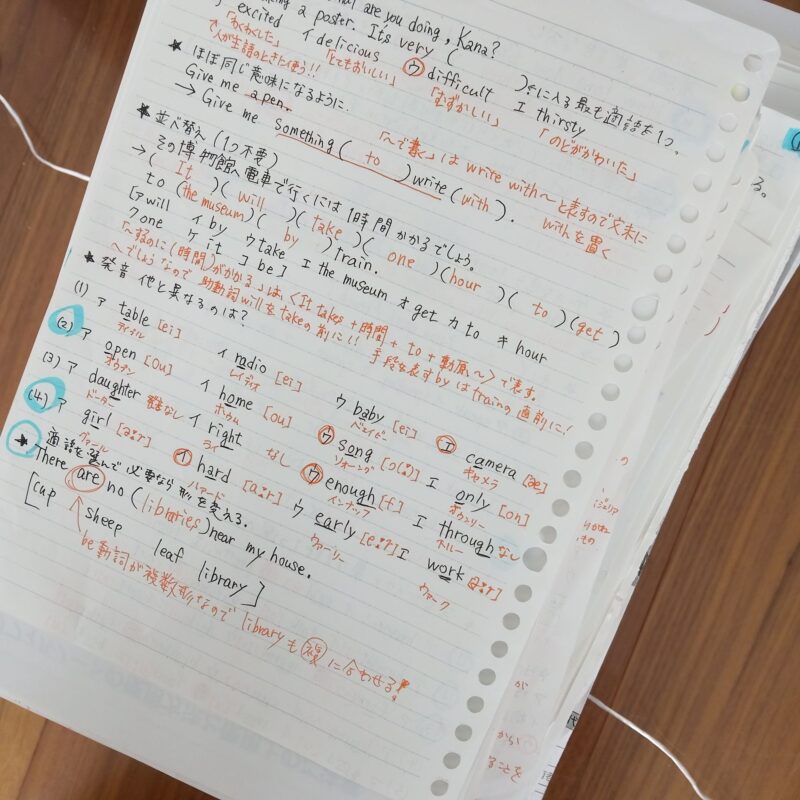 What are you doing, Kana?
a poster. It's very ( )
excited イ delicious ウ difficult エ thirsty
に入る最も適語を1つ。
「わくわくした」「とてもおいしい」「むずかしい」「のどがかわいた」
人が主語のときに使う!!
★ ほぼ同じ意味になるように.
Give me a pen.
→ Give me something ( to ) write ( with ).
「～で書く」は write with ～ と表すので文末に
with を置く
★ 並べ替え (1つ不要)
その博物館へ電車で行くには1時間かかるでしょう。
→ ( It )( will )( take )( one )( hour )( to )( get )
to (the museum)( by ) train.
[ア will イ by ウ take エ the museum オ get カ to キ hour
ク one ケ it コ be]
「～するのに(時間)がかかる」は、〈It takes + 時間 + to + 動原～〉で表す。
～でしょうなので助動詞willをtakeの前に!! 手段を表すbyはtrainの直前に!
★ 発音 他と異なるのは?
(1) ア table [ei] イ radio [ei] ウ baby [ei] エ camera [æ]
テイブル レイディオ ベイビー キャメラ
(2) ア open [ou] イ home [ou] ウ song [ɔ(ː)] エ only [ou]
オウプン ホウム ソーング オウンリー
(3) ア daughter 発音なし イ right なし ウ enough [f] エ through なし
ドーター ライ イナッフ スルー
(4) ア girl [əːr] イ hard [ɑːr] ウ early [əːr] エ work [əːr]
ガール ハアード アーリー ワーク
★ 適語を選んで必要なら形を変える.
There are no (libraries) near my house.
[cup sheep leaf library]
be動詞が複数形なので library も 複 に合わせる!